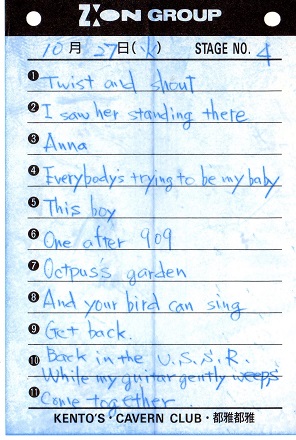 ZON GROUP
10月27日(火) STAGE NO. 4
❶ Twist and shout
❷ I saw her standing there
❸ Anna
❹ Everybody's trying to be my baby
❺ This boy
❻ One after 909
❼ Octpus's garden
❽ And your bird can sing
❾ Get back.
❿ Back in the U.S.S.R.
While my guitar gently weeps
⓫ Come together
KENTO'S・CAVERN CLUB・都雅都雅